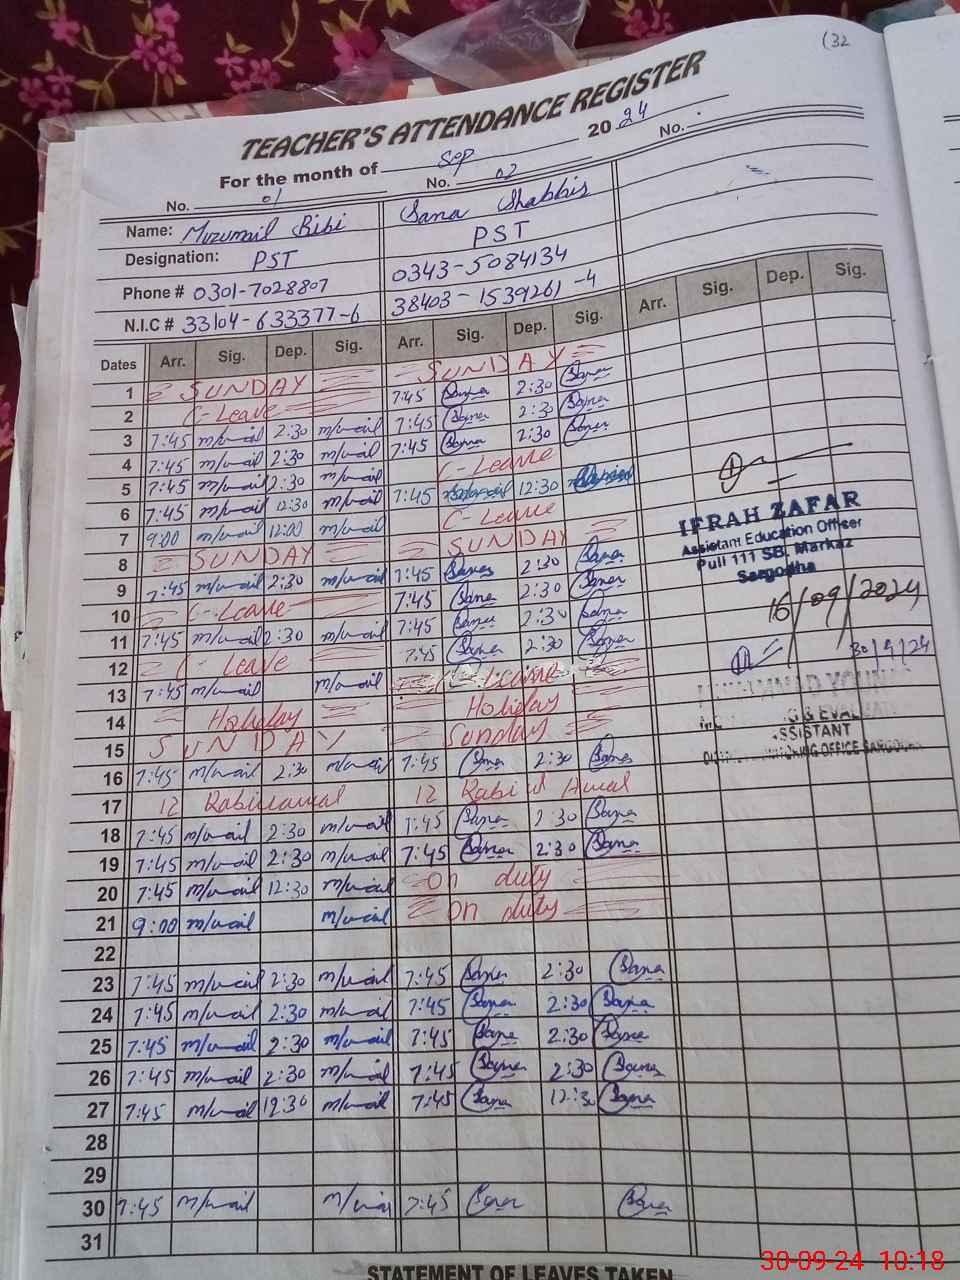 (32
TEACHER'S ATTENDANCE REGISTER
For the month of Sep 2024
No. 01 No. 02 No.
Name: Muzumail Bibi Sana Shabbir
Designation: PST PST
Phone # 0301-7028807 0343-5084134
N.I.C # 33104-633377-6 38403-1539261-4
Dates Arr. Sig. Dep. Sig. Arr. Sig. Dep. Sig. Arr. Sig. Dep. Sig.
1 SUNDAY SUNDAY
2 C-Leave 7:45 Sana 2:30 Sana
3 7:45 m/u-ail 2:30 m/u-ail 7:45 Sana 2:30 Sana
4 7:45 m/u-ail 2:30 m/u-ail 7:45 Sana 2:30 Sana
5 7:45 m/u-ail 2:30 m/u-ail C-Leave
6 7:45 m/u-ail 12:30 m/u-ail 7:45 12:30
7 9:00 m/u-ail 12:00 m/u-ail C-Leave
8 SUNDAY SUNDAY
9 7:45 m/u-ail 2:30 m/u-ail 7:45 Sana 2:30 Sana
10 C-Leave 7:45 Sana 2:30 Sana
11 7:45 m/u-ail 2:30 m/u-ail 7:45 Sana 2:30 Sana
12 C-Leave 7:45 Sana 2:30 Sana
13 7:45 m/u-ail m/u-ail Leave
14 Holiday Holiday
15 SUNDAY Sunday
16 7:45 m/u-ail 2:30 m/u-ail 7:45 Sana 2:30 Sana
17 12 Rabiulawal 12 Rabi ul Awal
18 7:45 m/u-ail 2:30 m/u-ail 7:45 Sana 2:30 Sana
19 7:45 m/u-ail 2:30 m/u-ail 7:45 Sana 2:30 Sana
20 7:45 m/u-ail 12:30 m/u-ail On duty
21 9:00 m/u-ail m/u-ail On duty
22
23 7:45 m/u-ail 2:30 m/u-ail 7:45 Sana 2:30 Sana
24 7:45 m/u-ail 2:30 m/u-ail 7:45 Sana 2:30 Sana
25 7:45 m/u-ail 2:30 m/u-ail 7:45 Sana 2:30 Sana
26 7:45 m/u-ail 2:30 m/u-ail 7:45 Sana 2:30 Sana
27 7:45 m/u-ail 12:30 m/u-ail 7:45 Sana 12:30 Sana
28
29
30 7:45 m/u-ail m/u-ail 7:45 Sana Sana
31
IFRAH ZAFAR
Assistant Education Officer
Pull 111 SB. Markaz
Sargodha
16/09/2024
30/9/24
MUHAMMAD
G & EVALUATI
ASSISTANT
OFFICE SARGODHA
STATEMENT OF LEAVES TAKEN
30-09-24 10:18